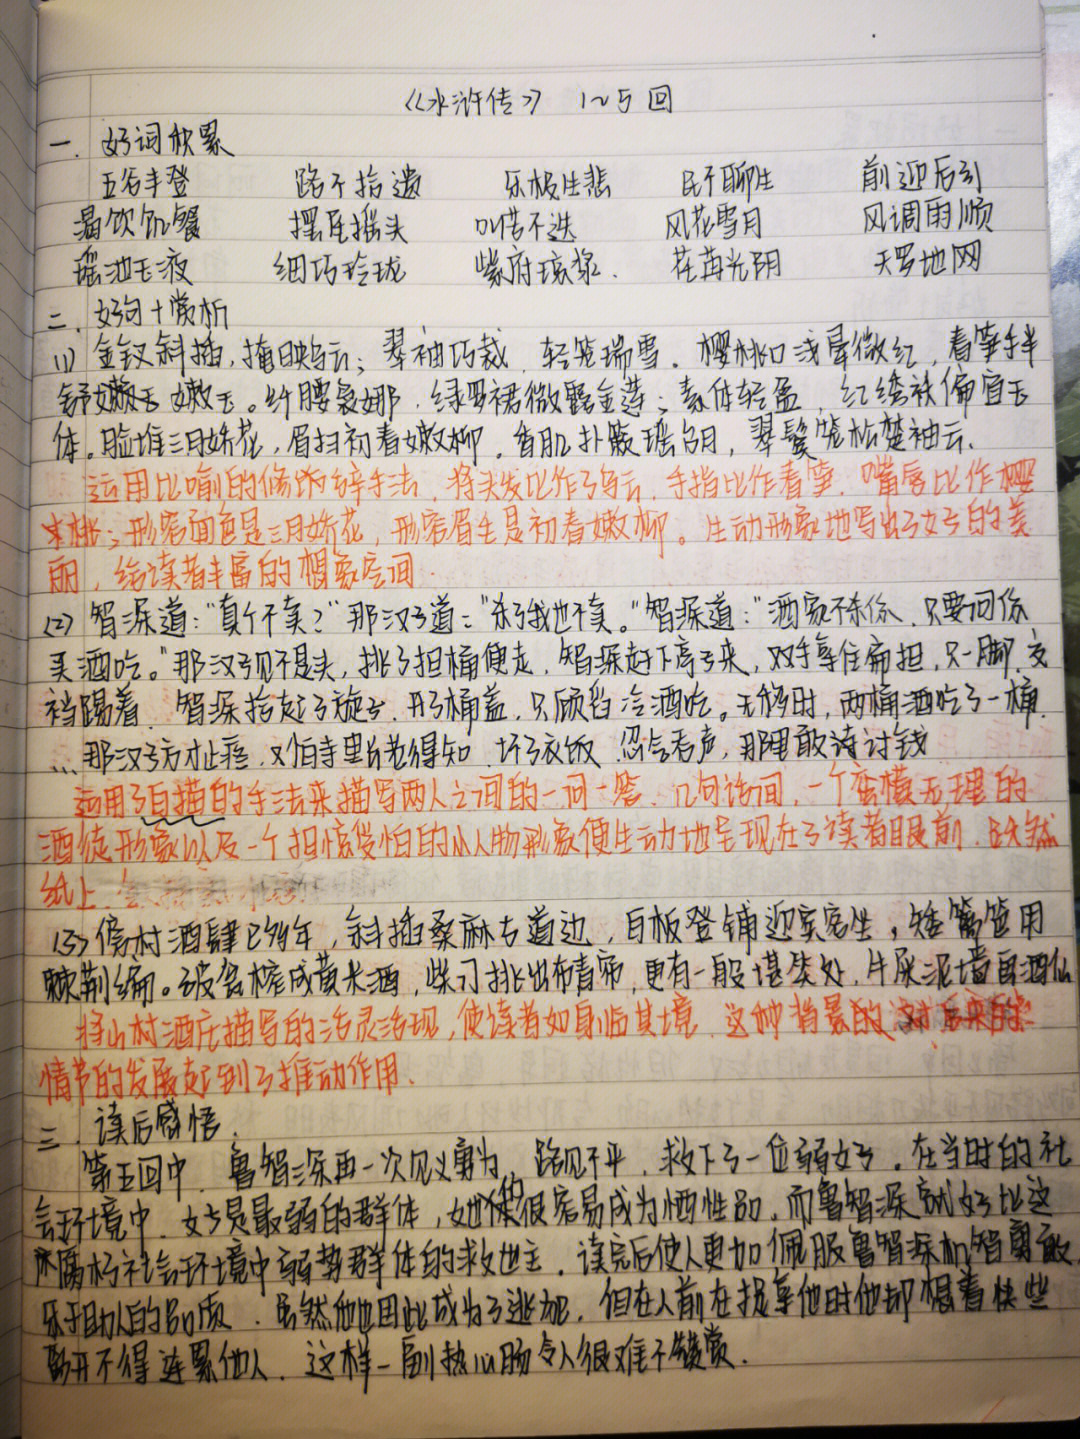 《水浒传》 1~5回
一. 好词积累
五谷丰登 路不拾遗 乐极生悲 民不聊生 前迎后引
渴饮饥餐 摆尾摇头 叫苦不迭 风花雪月 风调雨顺
瑶池玉液 细巧玲珑 紫府琼浆. 花苒光阴 天罗地网
二. 好句+赏析
(1) 金钗斜插,掩映乌云;翠袖巧裁,轻笼瑞雪.樱桃口浅晕微红,春笋手半
舒嫩玉 嫩玉。纤腰袅娜,绿罗裙微露金莲;素体轻盈,红绣袄偏宜玉
体。脸堆三月娇花,眉扫初春嫩柳.香肌扑簌瑶台月,翠鬓笼松楚岫云.
运用比喻的修饰辞手法,将头发比作乌云,手指比作春笋,嘴唇比作樱
桃;形容面色是三月娇花,形容眉毛是初春嫩柳。生动形象地写出了女子的美
丽,给读者丰富的想象空间.
(2) 智深道:"真个不卖?"那汉子道:"杀了我也不卖。"智深道:"洒家不杀你,只要问你
买酒吃。"那汉子见不是头,挑了担桶便走.智深赶下亭子来,双手拿住扁担,只一脚,交
裆踢着.智深拾起了旋子,开了桶盖,只顾舀冷酒吃。无移时,两桶酒吃了一桶.
...那汉子方才止疼,又怕寺里长老得知,坏了衣饭,忍气吞声,那里敢讨钱
运用了白描的手法来描写两人之间的一问一答,几句话间,一个蛮横无理的
酒徒形象以及一个担惊受怕的小人物形象便生动地呈现在了读者眼前,跃然
纸上.
(3) 傍村酒肆已多年,斜插桑麻古道边,白板凳铺迎宾客坐,矮篱笆用
棘荆编。破瓮榨成黄米酒,柴门挑出布青帘,更有一般堪笑处,牛屎泥墙画酒仙
将山村酒店描写的活灵活现,使读者如身临其境.这种背景的
情节的发展起到了推动作用.
三. 读后感悟.
第五回中,鲁智深再一次见义勇为,路见不平,救下了一位弱女子。在当时的社
会环境中,女子是最弱的群体,她们很容易成为牺牲品.而鲁智深就好比这
腐朽社会环境中弱势群体的救世主.读完后使人更加佩服鲁智深机智勇敢,
乐于助人的品质.虽然他也因此成为了逃犯,但在人前在捉拿他时他却想着快些
离开不得连累他人.这样一副热心肠令人很难不赞赏.